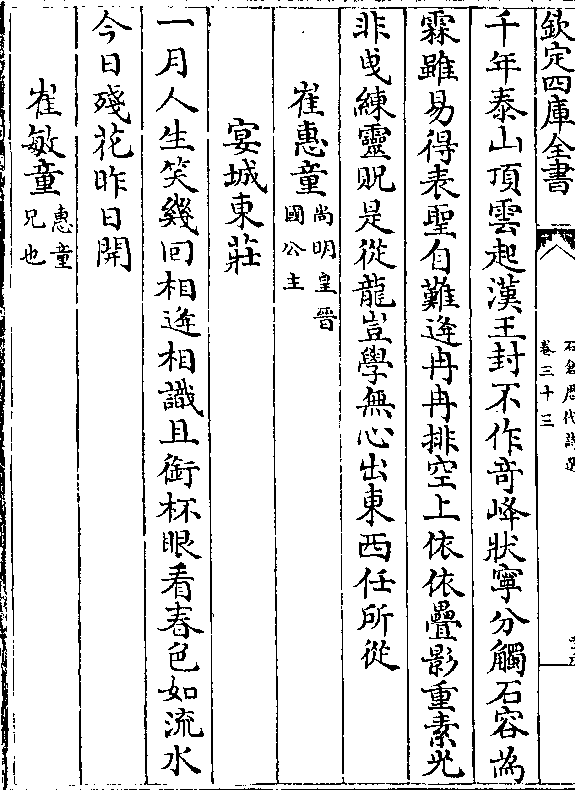 欽定四庫全書
石倉歴代詩選
卷三十三
千年泰山頂雲起漢王封不作竒峰狀寧分觸石容為
霖雖易得表聖自難逄冉冉排空上依依疊影重素光
非曵練靈貺是從龍豈學無心出東西任所從
崔惠童尚明皇晉國公主
宴城東莊
一月人生笑幾回相逄相識且銜杯眼看春色如流水
今日殘花昨日開
崔敏童惠童兄也